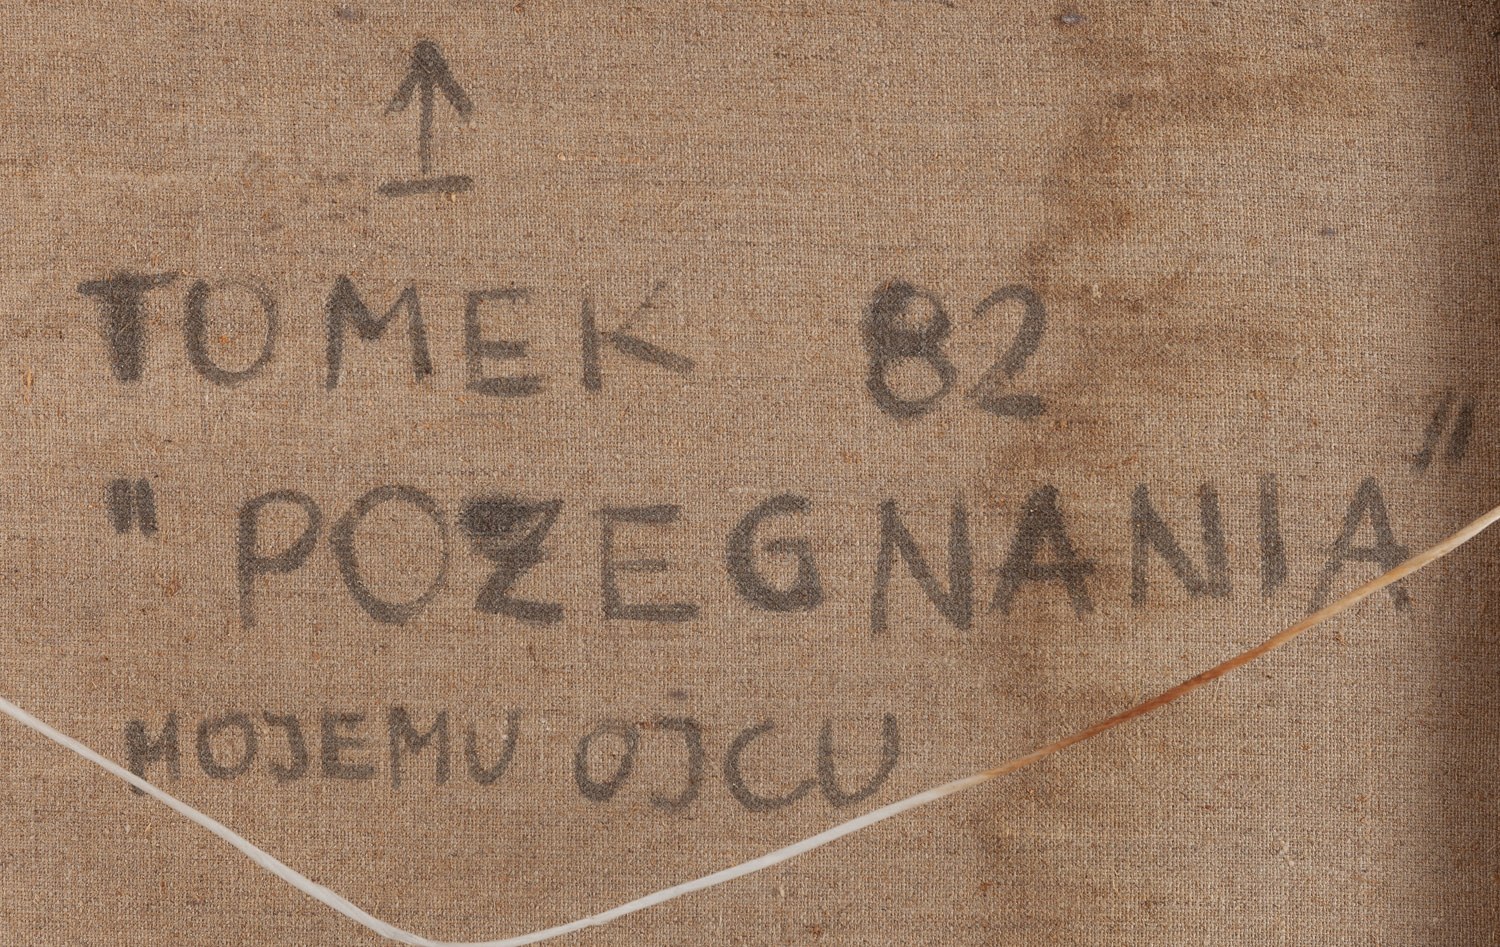 ↑
TOMEK 82
"POZEGNANIA"
MOJEMU OJCU